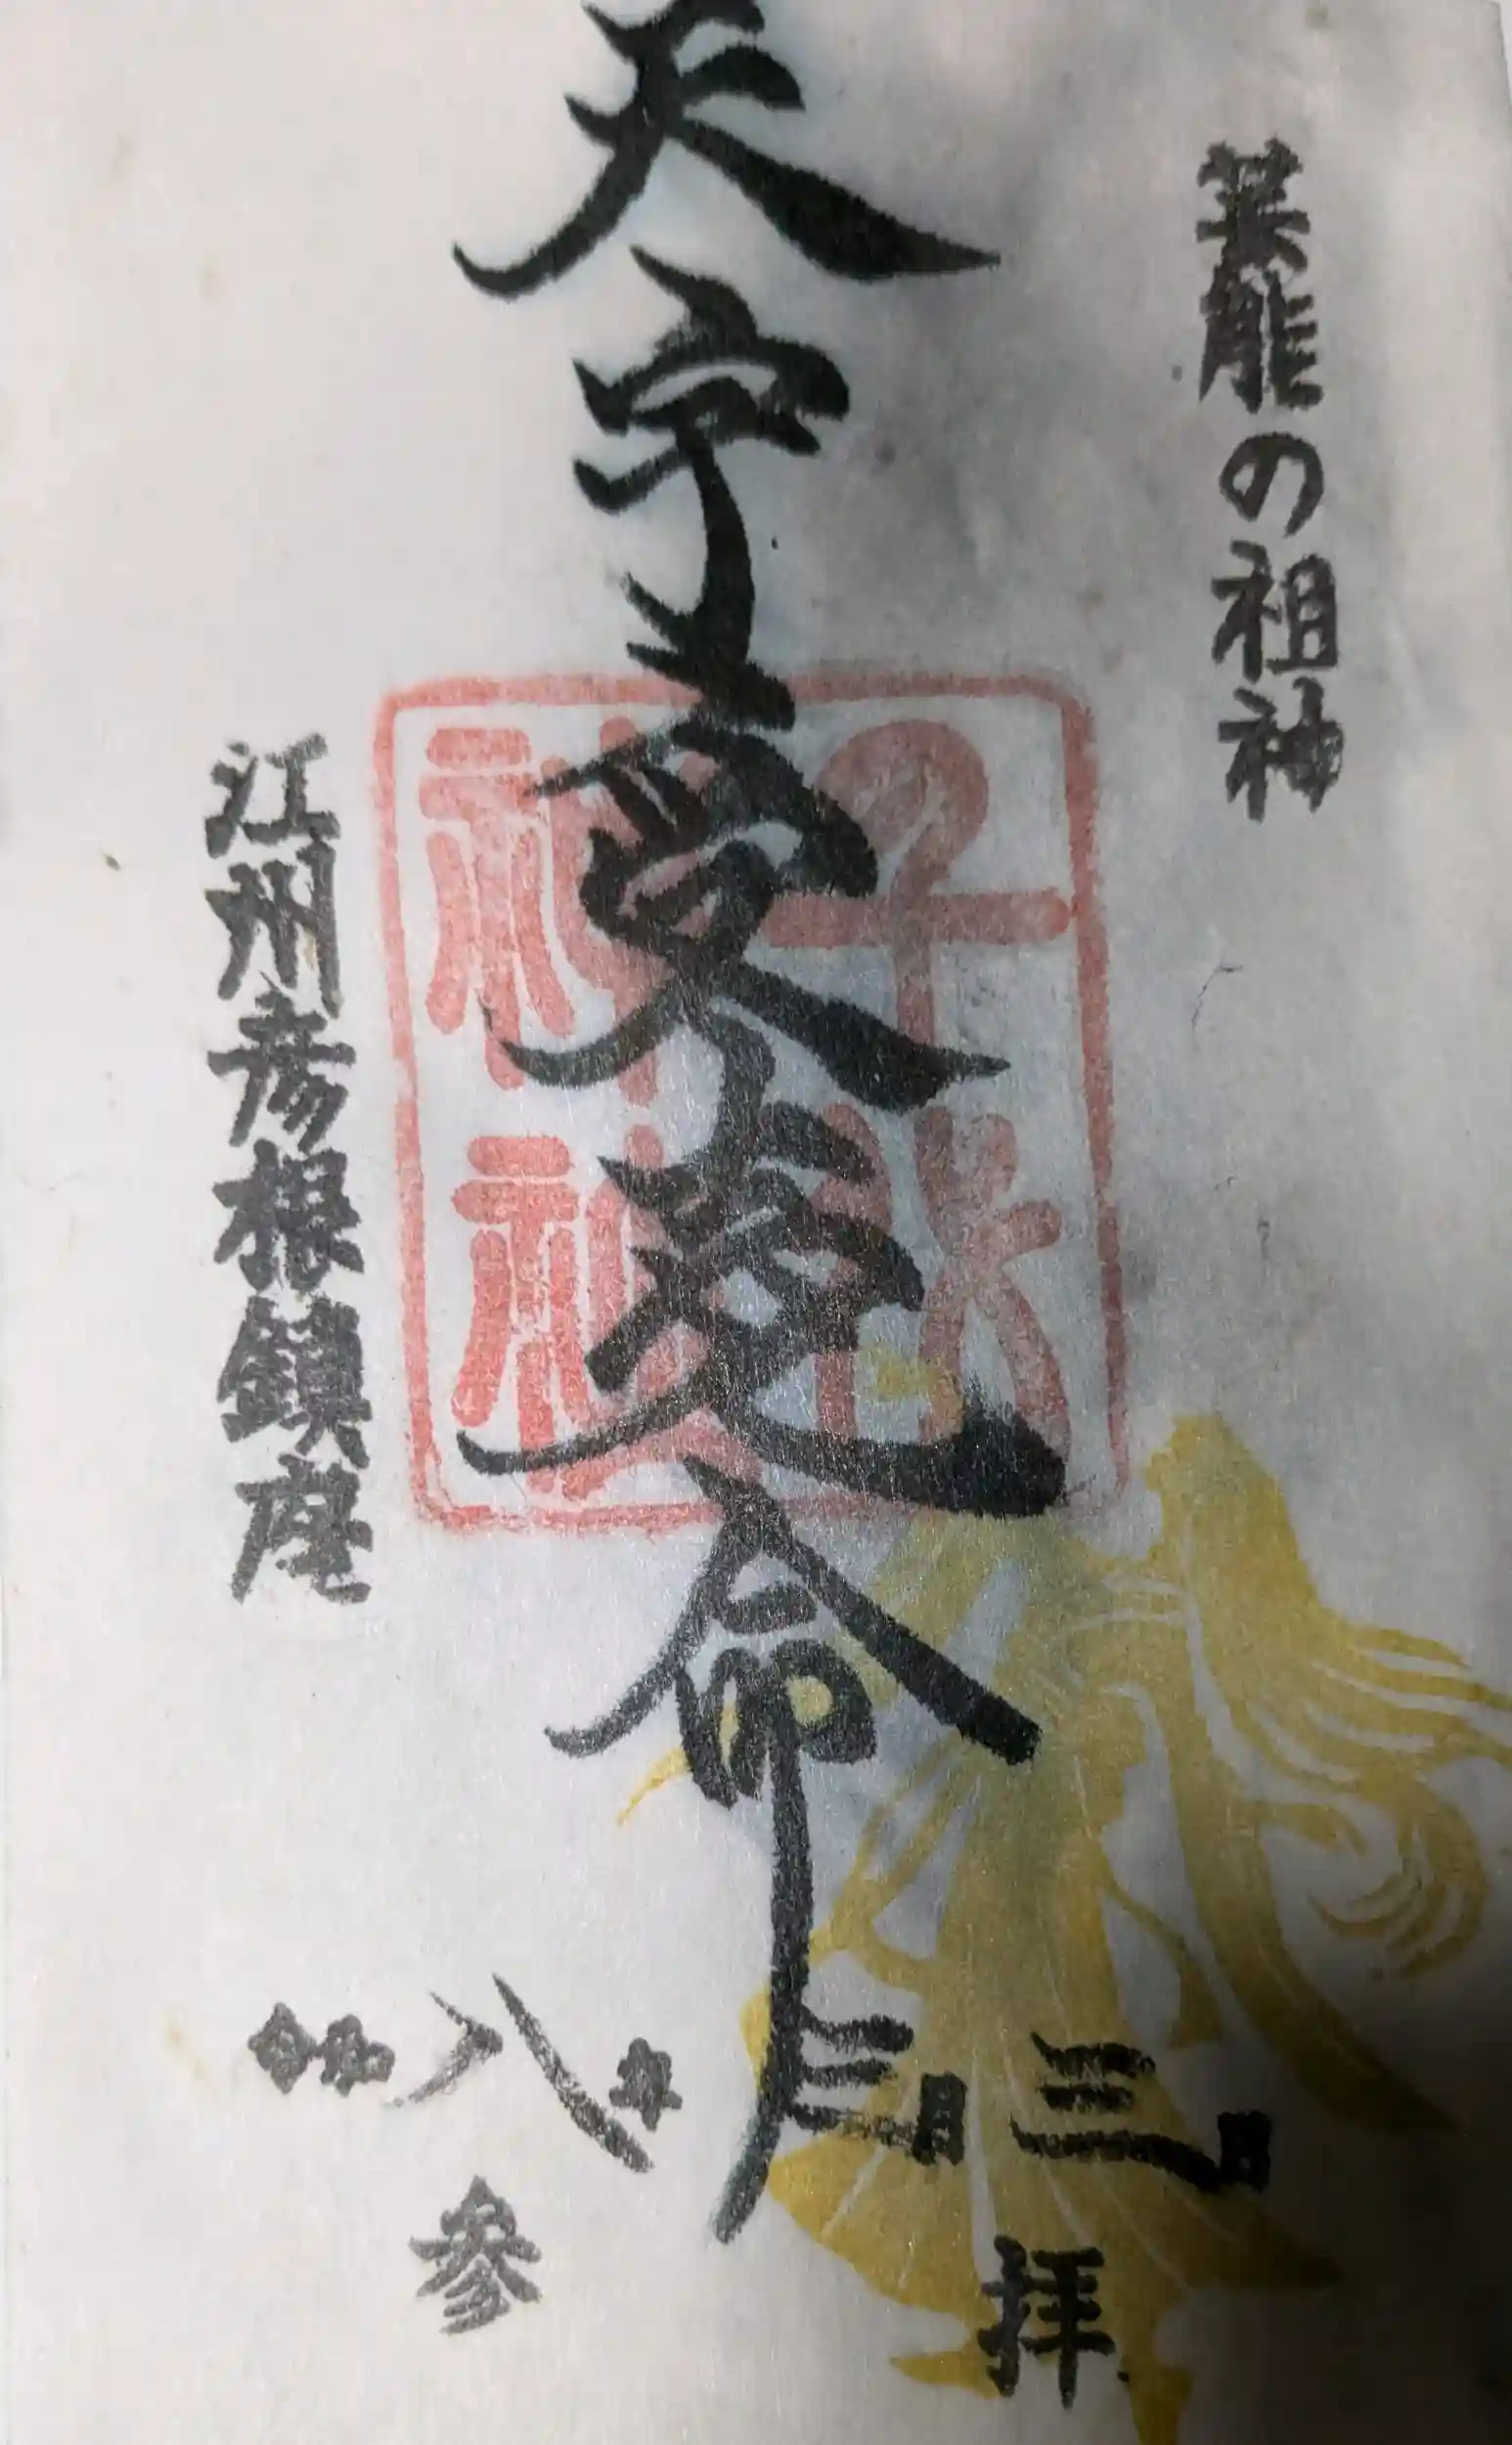 芸能の祖神
天宇受売命
江州彦根鎮座
千代
神社
令和八年三月三日
参拝